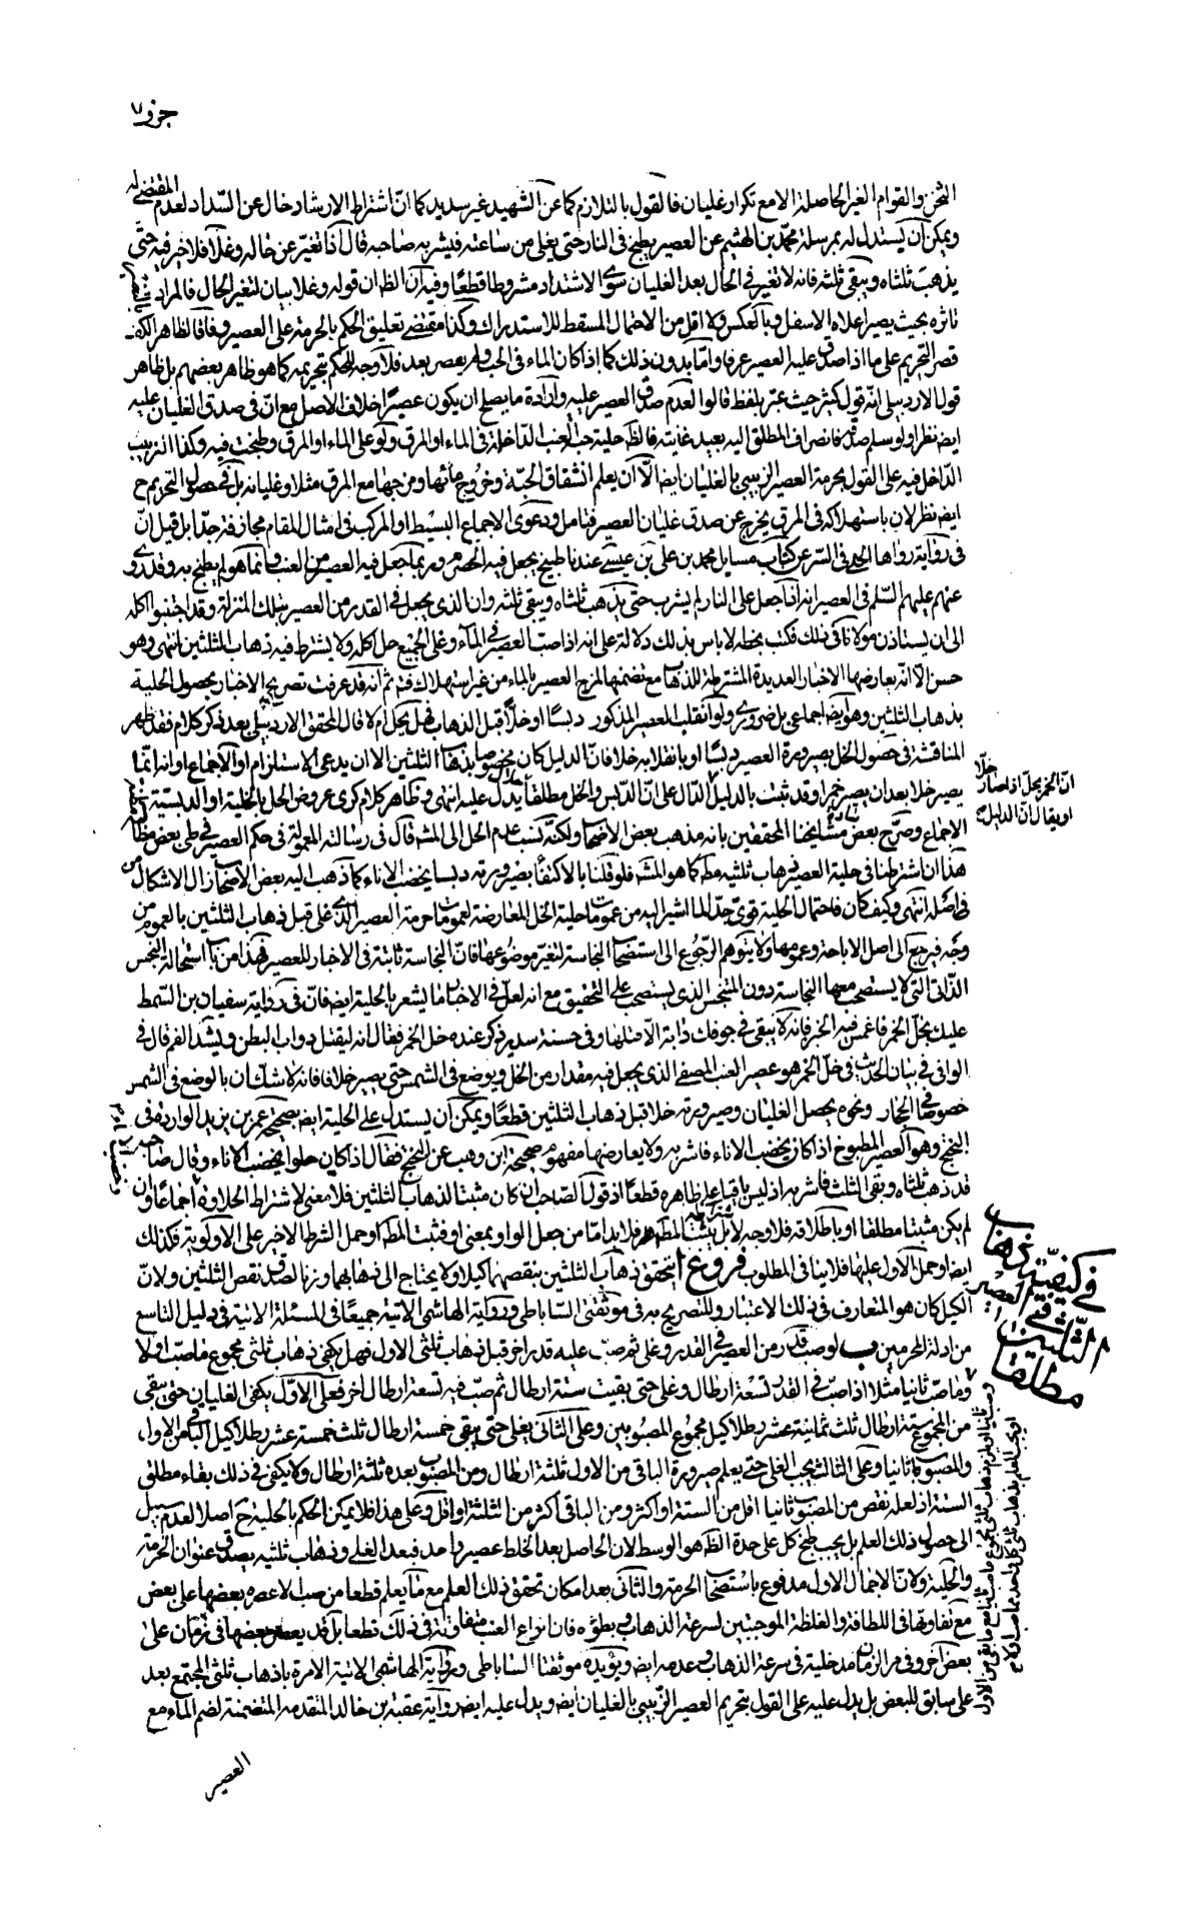 جزو ٧
الثخن والقوام الغير الحاصلة الا مع تكرار غليان فالقول بالتلازم كما عن الشهيد غير سديد كما انّ اشتراط الارشاد خال عن السّداد لعدم المقتضى له
ويمكن ان يستدل له بمرسلة محمّد بن الهيثم عن العصير يطبخ فى النار حتى يغلى من ساعته فيشربه صاحبه قال اذا تغيّر عن حاله وغلا فلا خير فيه حتّى
يذهب ثلثاه ويبقى ثلثه فانه لا تغير فى الحال بعد الغليان سوى الاشتداد مشروطا قطعًا وفيه ان الظ ان قوله وغلا بيان لتغير الحال فالمراد
بحيث يصير اعلاه الاسفل وبالعكس ولا اقل من الاحتمال المسقط للاستدراك وكذا مقتضى تعليق الحكم بالحرمة على العصير وفاقا لظاهر
قصر التحريم على ما اذا صدق عليه العصير عرفا وامّا بدون ذلك كما اذا كان الماء فى الحب ولم يعصر بعد فلا وجه للحكم بتحريمه كما هو ظاهر بعضهم بل ظاهر
قول الاردبيلى انّه قول كثير حيث عبّر بلفظ قالوا لعدم صدق العصير عليه وارادة ما يصلح ان يكون عصيرًا خلاف الاصل مع ان فى صدق الغليان عليه
ايض نظر او لو سلم صدقه فانصراف المطلق اليه بعيد غايته فالظ حلية حب العنب الدّاخلة فى الماء او المرق ولو على الماء او المرق وطبخت فيه وكذا الزبيب
الدّاخل فيه على القول بحرمة العصير الزبيبى بالغليان ايض الّا ان يعلم انشقاق الحبّة وخروج مائها ومزجها مع المرق مثلا وغليانه بل فى حصول التحريم ح
ايض نظر لان باستهلاكه فى المرق يخرج عن صدق غليان العصير فتامل ودعوى الاجماع البسيط او المركب فى امثال المقام مجازفة جدّا بل قيل انّ
فى رواية رواها الحلى فى السّر عن كتاب مسايل محمد بن على بن عيسى عندنا طبيخ يجعل فيه الحصرم وربما جعل فيه العصير من العنب وانما هو لحم يطبخ به وقد روى
عنهم عليهم السّلم فى العصير انه اذا جعل على النار لم يشرب حتى يذهب ثلثاه ويبقى ثلثه وان الذى يجعل فى القدر من العصير بتلك المنزلة وقد اجتنبوا اكله
الى ان يستاذن مولانا فى ذلك فكتب بخطه لا باس بذلك دلالة على انه اذا صبّ العصير فى الماء وغلى الجميع حل اكله ولا يشترط فيه ذهاب الثلثين انتهى وهو
حسن الا انّه يعارضها الاخبار العديدة المشترطة للذهاب مع تضمنهما لمزج العصير بالماء من غير استهلاك فته ثم انه قد عرفت تصريح الاخبار بحصول الحلية
بذهاب الثلثين وهو ايض اجماعى بل ضرورى ولو انقلب العصير المذكور دبسًا او خلًا قبل الذهاب فهل يحل ام لا قال المحقق الاردبيلى بعد ذكر كلام فقد ظهر
المناقشة فى حصول الحل بصيرورة العصير دبسًا او بانقلابه خلا فانّ الدليل كان مخصوصا بذهاب الثلثين الا ان يدعى الاستلزام او الاجماع او انه انّما
يصير خلا بعد ان يصير خمرا وقد ثبت بالدليل الدّال على انّ الدّبس والخل مطلقا حلال يدل عليه انتهى وظاهر كلام كرى عروض الحل بالخلية او الدبسية
الاجماع وصرّح بعض مشايخنا المحققين بانه مذهب بعض الاصحاب ولكنّه نسب عدم الحل الى المشه قال فى رسالته المعمولة فى حكم العصير فى طى بعض
هذا ان اشترطنا فى حلية العصير ذهاب ثلثيه مط كما هو المشه فلو قلنا بالاكتفاء بصيرورته دبسا يخضب الاناء كما ذهب اليه بعض الاصحاب زال الاشكال من
اصله انتهى وكيف كان فاحتمال الحلية قوىّ جدّا لما اشير اليه من عمومات حلية الخل المعارضة لعمومات حرمة العصير الذى غلى قبل ذهاب الثلثين بالعموم من
وجه فيرجع الى اصل الاباحة وعمومها ولا يتوهم الرّجوع الى استصحاب النجاسة لتغيّر موضوعها فانّ النجاسة ثابتة فى الاخبار للعصير فهذا من باب استحالة النجس
الذّاتى التى لا يستصحب معها النجاسة دون المتنجس الذى يستصحب على التحقيق مع انه لعل فى الاخبار ما يشعر بالحلية ايض فانّ فى رواية سفيان بن السّمط
عليك بخلّ الخمر فاغمس فيه الخبز فانه لا يبقى فى جوفك دابة الّا قتلها وفى حسنة سدير ذكر عنده خل الخمر فقال انه ليقتل دواب البطن ويشدّ الفم قال فى
الوافى فى بيان الحديث فى خلّ الخمر هو عصير العنب المصفى الذى يجعل فيه مقدار من الخل ويوضع فى الشمس حتى يصير خلا فانه لا شك ان بالوضع فى الشمس
خصوصًا فى الحار ونحوه يحصل الغليان وصيرورته خلا قبل ذهاب الثلثين قطعًا ويمكن ان يستدل على الحلية ايض بصحيحة عمر بن يزيد الواردة فى
البختج وهو العصير المطبوخ اذا كان يخضب الاناء فاشربه ولا يعارضها مفهوم صحيحة ابن وهب عن البختج فقال اذا كان حلوا يخضب الاناء وقال صاحبه
قد ذهب ثلثاه وبقى الثلث فاشربه اذ ليس باقيا على ظاهره قطعًا اذ قول الصّاحب ان كان مثبتا لذهاب الثلثين فلا معنى لاشتراط الحلاوة اجماعًا وان
لم يكن مثبتا مطلقا او باطلاقه فلا وجه لاشتراطه فلا بد امّا من جعل الواو بمعنى او فثبت المط او حمل الشرط الاخير على الاولوية فكذلك
ايض او حمل الاول عليها فلا ينافى المطلوب فروع ا يتحقق ذهاب الثلثين بنقصهما كيلا ولا يحتاج الى ذهابهما وزنا لصدق نقص الثلثين ولانّ
الكيل كان هو المتعارف فى ذلك الاعتبار وللتصريح به فى موثقتى السّاباطى ورواية الهاشمى الاتية جميعًا فى المسئلة الاتية فى دليل التاسع
من ادلة المحرمين ب لو صب قدر من العصير فى القدر وغلى ثم صبّ عليه قدر اخر قبل ذهاب ثلثى الاول فهل يكفى ذهاب ثلثى مجموع ما صبّ اولا
وما صبّ ثانيا مثلا اذا صبّ فى القدر تسعة ارطال وغلى حتى بقيت ستة ارطال ثم صبّ فيه تسعة ارطال اخر فعلى الاوّل يكفى الغليان حتى يبقى
من المجموع ستة ارطال ثلث ثمانية عشر رطلا كيل مجموع المصبوبين وعلى الثانى يغلى حتى يبقى خمسة ارطال ثلث خمسة عشر رطلا كيل الباقى من الاول
والمصبوب ثانيا وعلى الثالث يجب الغلى حتى يعلم صيرورة الباقى من الاول ثلثة ارطال ومن المصبوب بعده ثلثة ارطال ولا يكفى فى ذلك بقاء مطلق
الستة اذ لعله نقص من المصبوب ثانيا اقل من الستة او اكثر ومن الباقى اكثر من الثلثة او اقل وعلى هذا فلا يمكن الحكم بالحلية ح اصلا لعدم سبيل
الى حصول ذلك العلم بل يجب طبخ كل على حدة الظ هو الوسط لان الحاصل بعد الخلط عصير واحد فبعد الغلى وذهاب ثلثيه يصدق عنوان الحرمة
والحلية ولانّ الاجمال الاول مدفوع باستصحاب الحرمة والثانى بعد امكان تحقق ذلك العلم مع ما يعلم قطعا من صب الاعصرة بعضها على بعض
مع تفاوتها فى اللطافة والغلظة الموجبتين لسرعة الذهاب وبطؤه فان انواع العنب متفاوتة فى ذلك قطعا بل قد يعصر بعضها فى زمان على
بعض اخر وفى مر الزمان مدخلية فى سرعة الذهاب وعدمه ايض ويؤيده موثقتا السّاباطى ورواية الهاشمى الاتية الامرة باذهاب ثلثى المجتمع بعد
على سابق للبعض بل يدل عليه على القول بتحريم العصير الزّبيبى بالغليان ايض ويدل عليه ايض رواية عقبة بن خالد المتقدمة المتضمنة لضم الماء مع
العصير
انّ الخمر يحلّ اذا صار خلّا
او يقال انّ الدليل
فى كيفيّة ذهاب
الثّلثين فى العصير
مطلقا